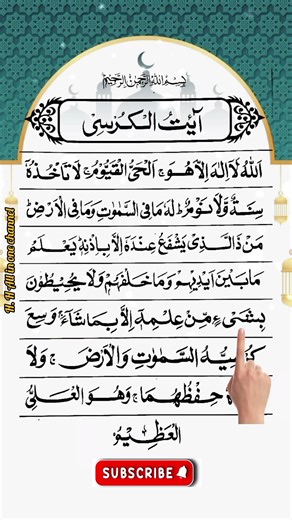 بِسْمِ اللهِ الرَّحْمٰنِ الرَّحِيْمِ
آيَتُ الْكُرْسِی
اَللّٰهُ لَآ اِلٰهَ اِلَّا هُوَ ۚ اَلْحَیُّ الْقَیُّوْمُ ۚ لَا تَاْخُذُهٗ
سِنَةٌ وَّلَا نَوْمٌ ؕ لَهٗ مَا فِی السَّمٰوٰتِ وَمَا فِی الْاَرْضِ ؕ
مَنْ ذَا الَّذِیْ یَشْفَعُ عِنْدَهٗۤ اِلَّا بِاِذْنِهٖ ؕ یَعْلَمُ
مَا بَیْنَ اَیْدِیْهِمْ وَمَا خَلْفَهُمْ ۚ وَلَا یُحِیْطُوْنَ
بِشَیْءٍ مِّنْ عِلْمِهٖۤ اِلَّا بِمَا شَآءَ ۚ وَسِعَ
كُرْسِیُّهُ السَّمٰوٰتِ وَالْاَرْضَ ۚ وَلَا
حِفْظُهُمَا ۚ وَهُوَ الْعَلِیُّ
الْعَظِیْمُ
SUBSCRIBE
All in one channel